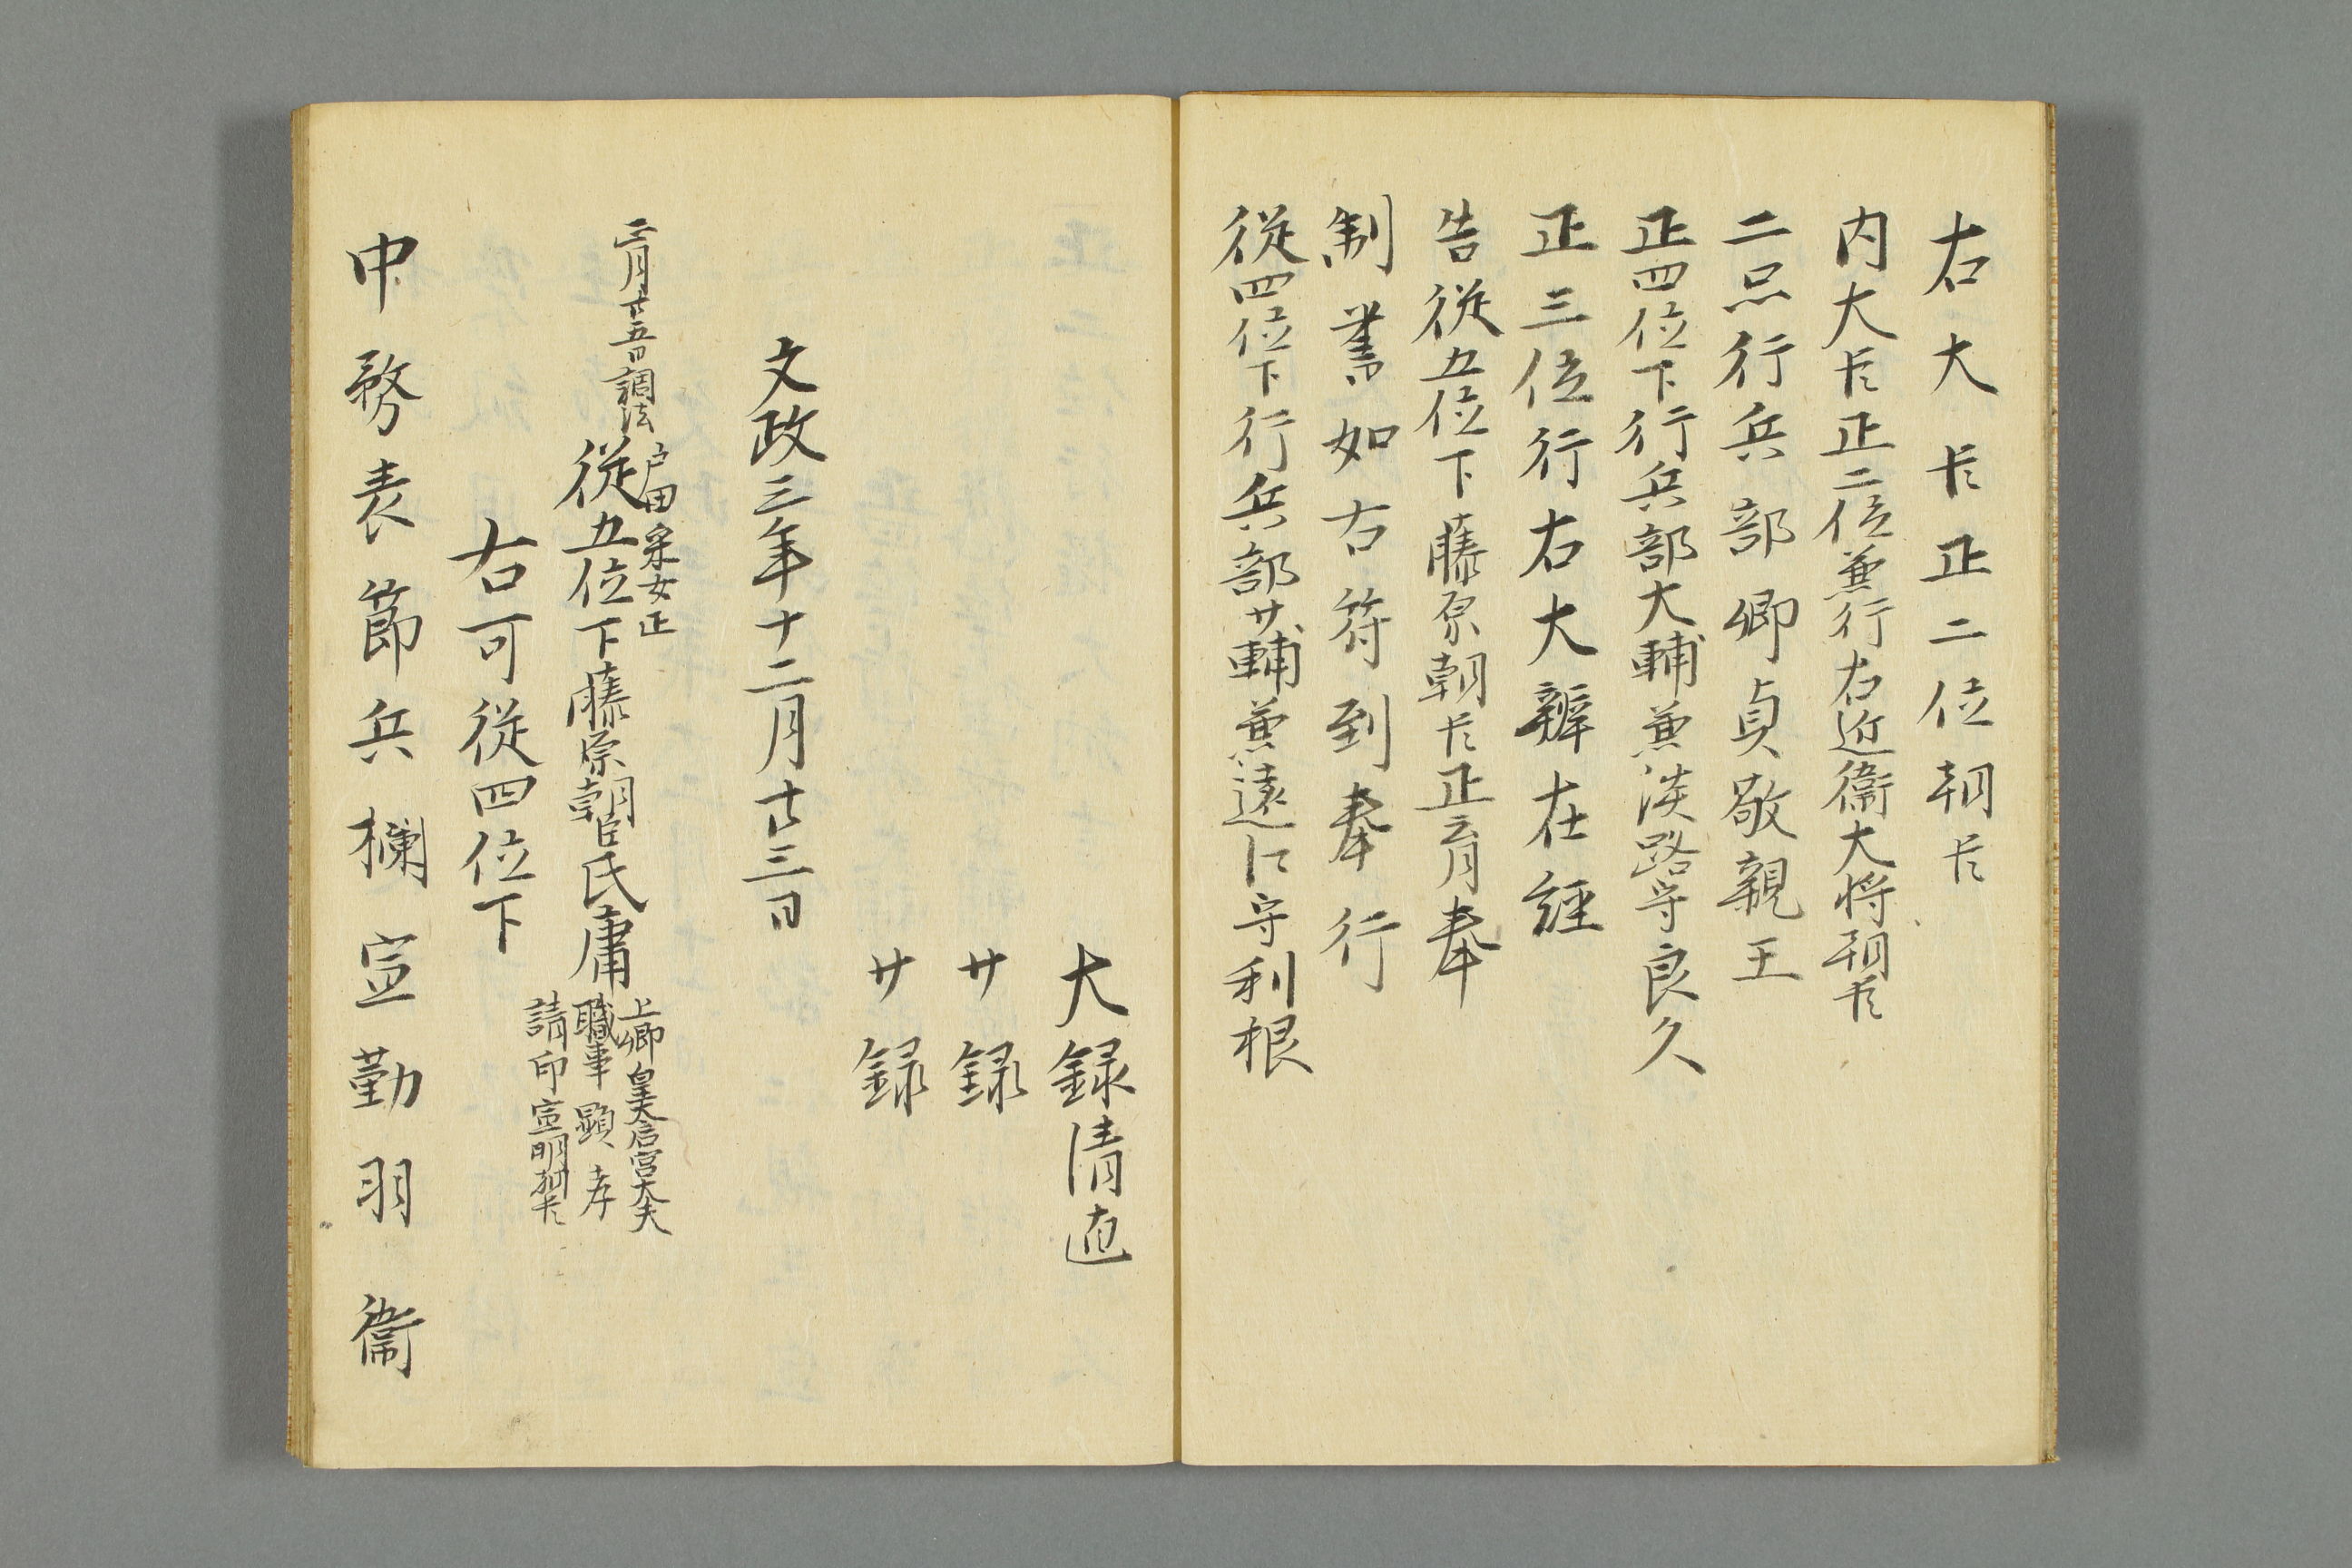 右大臣正二位朝臣
内大臣正二位兼行右近衛大将朝臣
二品行兵部卿貞敬親王
正四位下行兵部大輔兼淡路守良久
正三位行右大辨在経
告従五位下藤原朝臣正育奉
制書如右符到奉行
従四位下行兵部少輔兼遠江守利根
大録清直
少録
少録
文政三年十二月廿三日
三月廿五日調法
戸田采女正
従五位下藤原朝臣氏庸
上卿皇太后宮大夫
職事顕孝
請印宣明朝臣
右可従四位下
中務表節兵欄宣勤羽衛